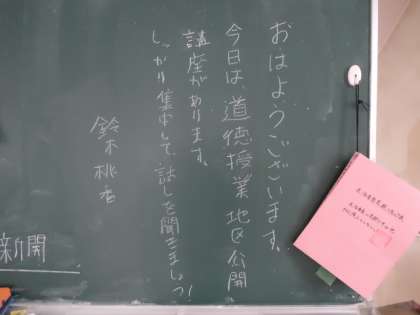 おはようございます。
今日は、道徳授業地区公開
講座があります。
しっかり集中して話しを聞きましょう!
鈴木桃香
新聞